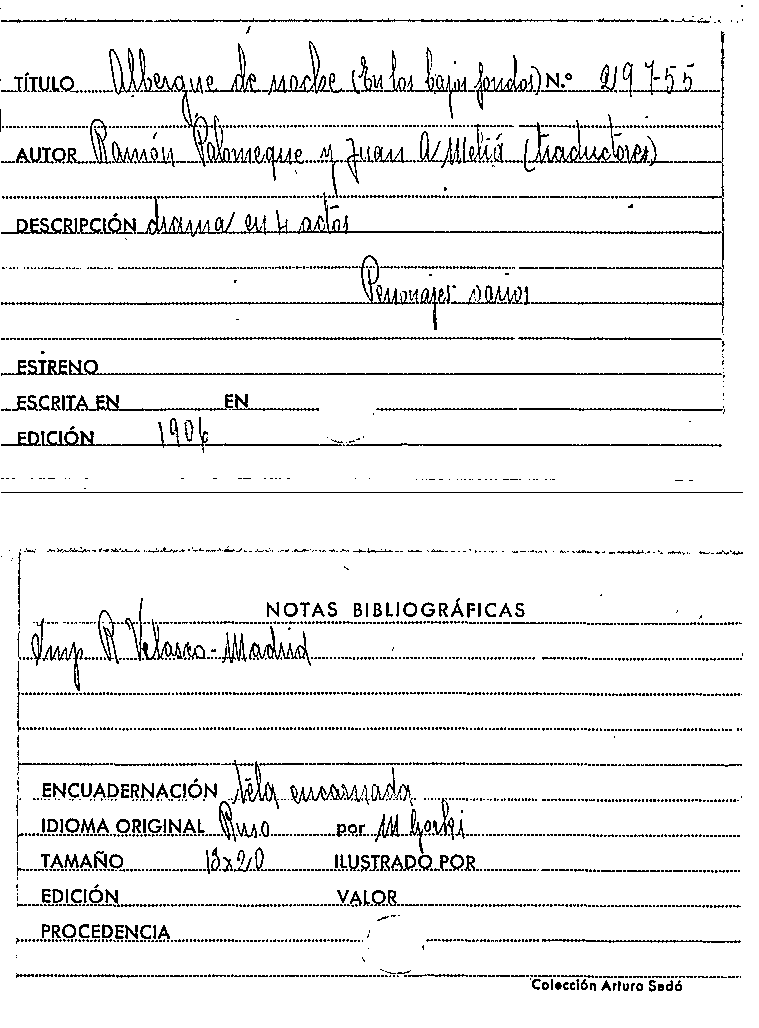 TÍTULO Albergue de noche (En los bajos fondos) N.º 2197-55
AUTOR Ramón Palomeque y Juan A Meliá (traductores)
DESCRIPCIÓN drama en 4 actos
Personajes varios
ESTRENO
ESCRITA EN EN
EDICIÓN 1904
NOTAS BIBLIOGRÁFICAS
Imp R Velasco - Madrid
ENCUADERNACIÓN tela encarnada
IDIOMA ORIGINAL Ruso por M Gorki
TAMAÑO 13x20 ILUSTRADO POR
EDICIÓN VALOR
PROCEDENCIA
Colección Arturo Sedó